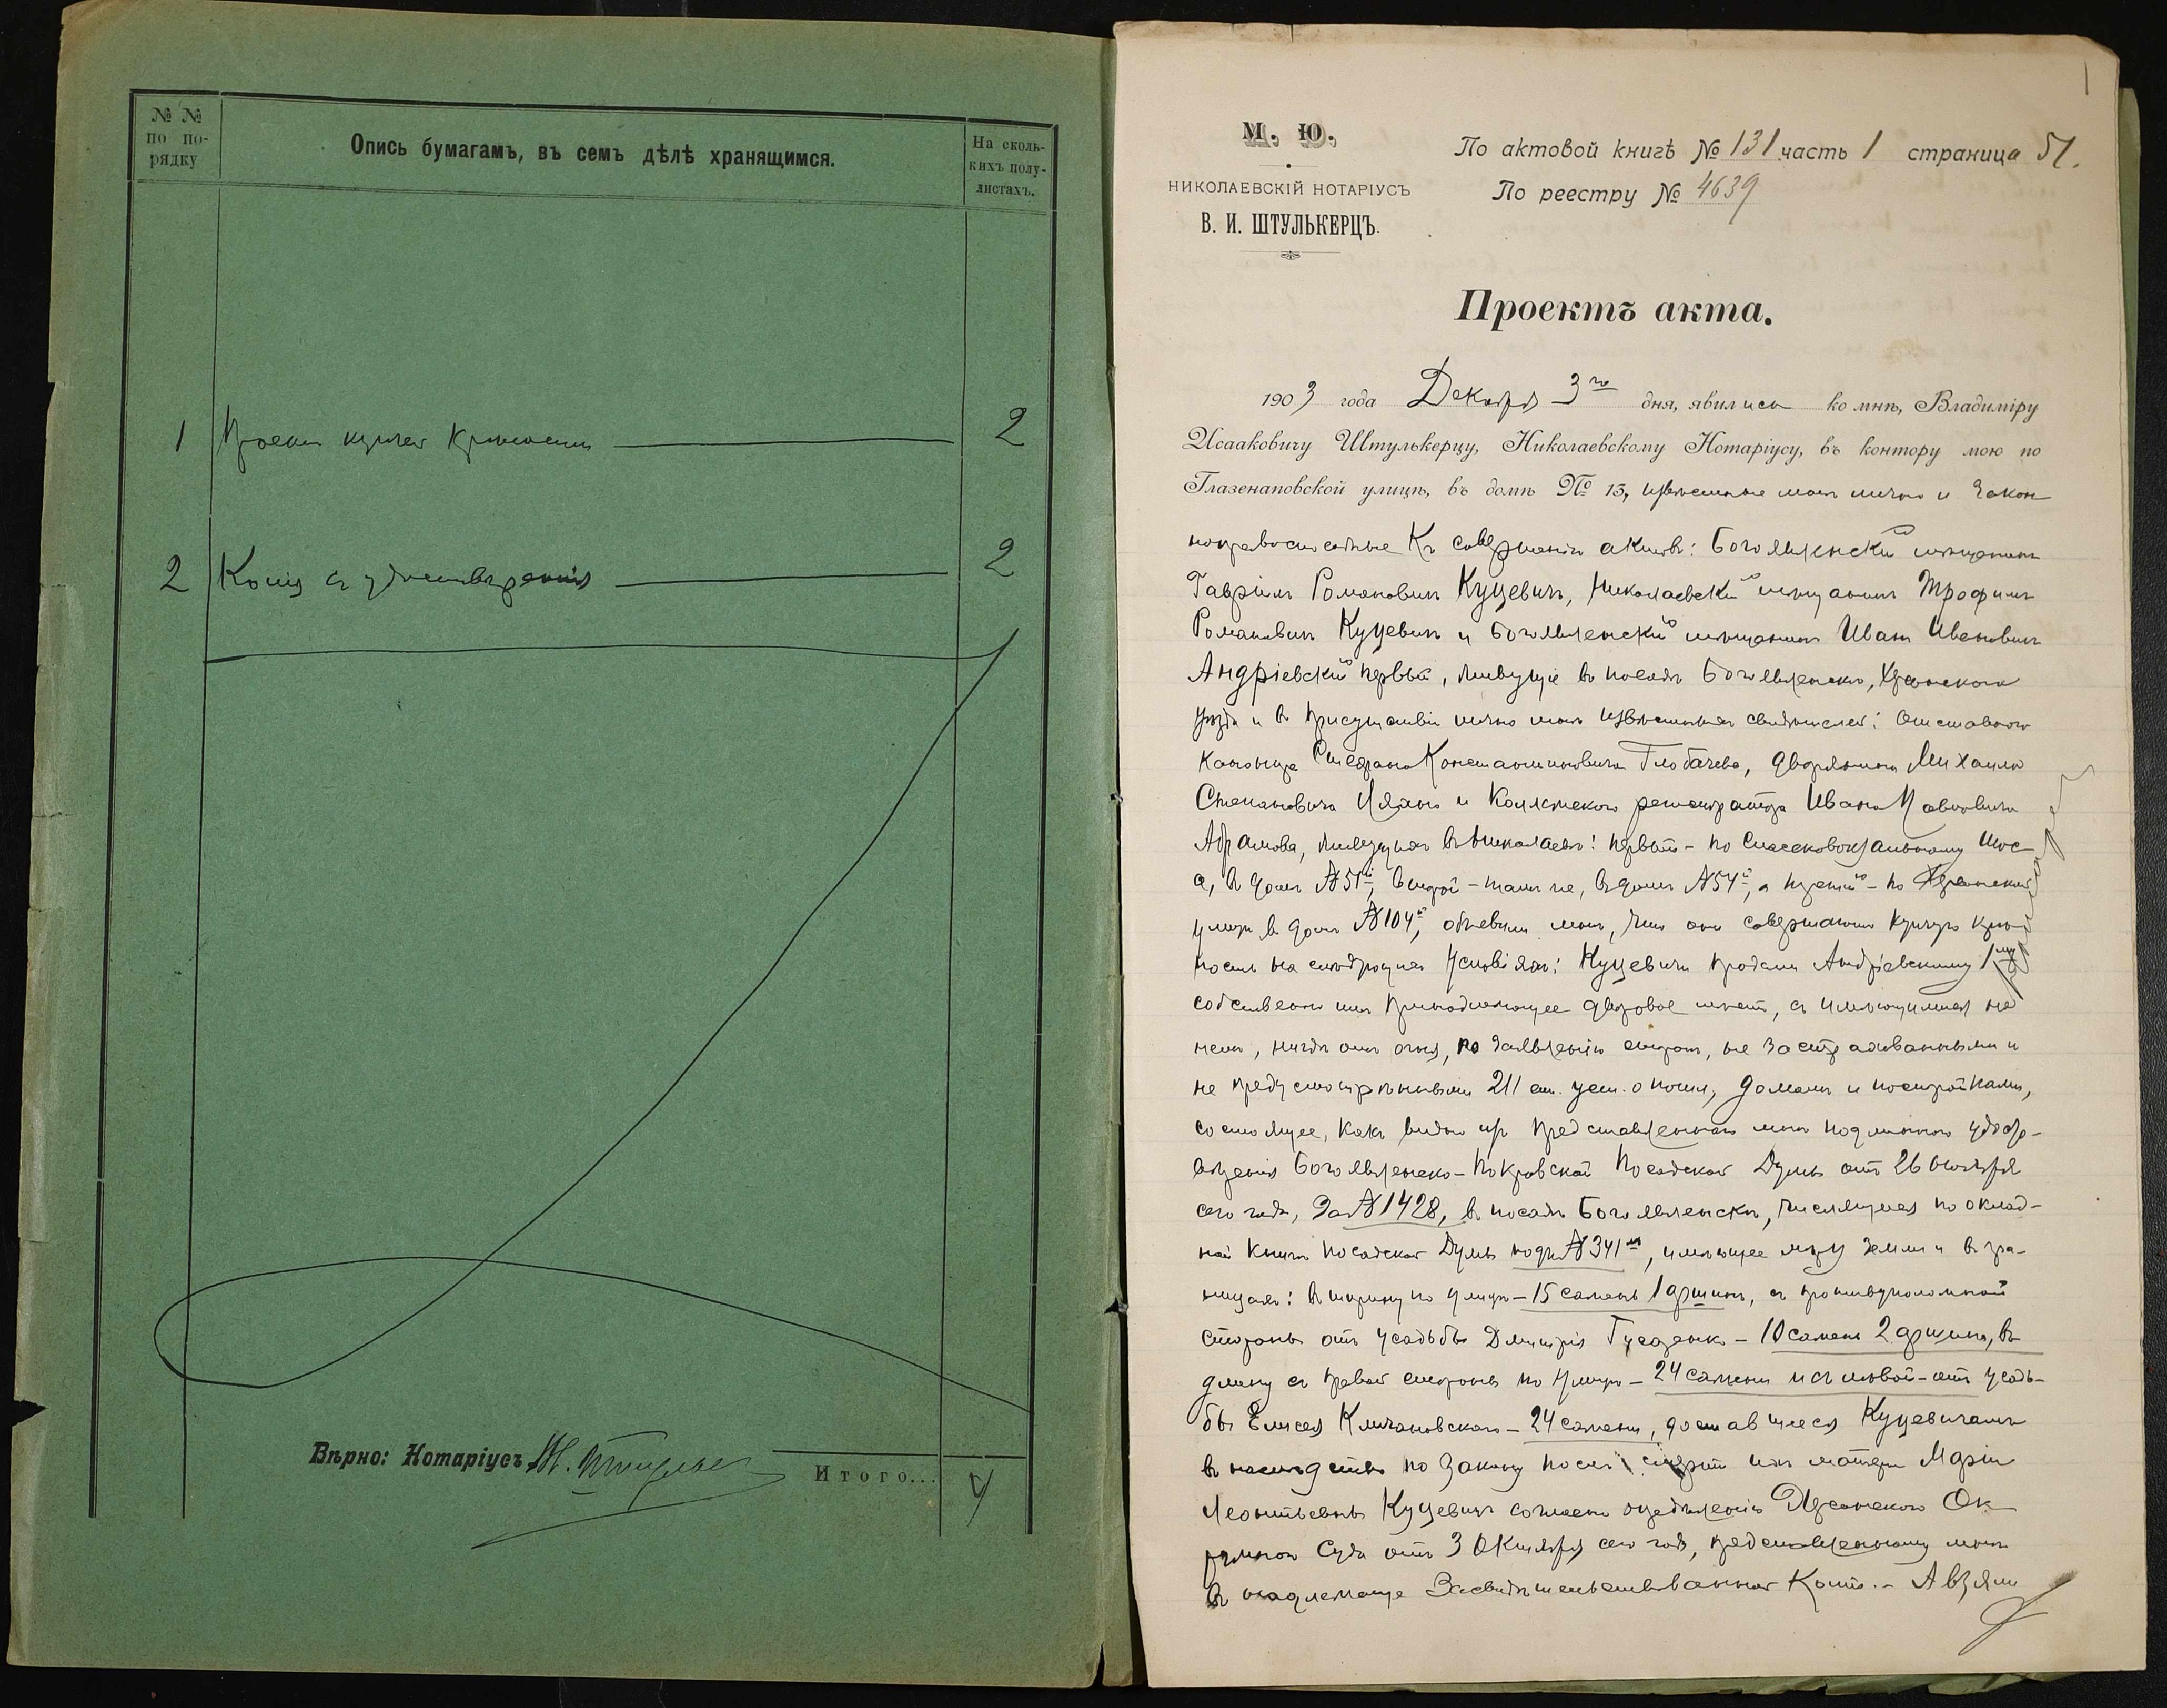 № №
по по-
рядку
Опись бумагамъ, въ семъ дѣлѣ хранящимся.
На сколь-
кихъ полу-
листахъ.
1 Проект купчей крѣпости 2
2 Копія съ удостовѣренія 2
Вѣрно: Нотаріусъ
Итого... 4
М. Ю.
НИКОЛАЕВСКІЙ НОТАРІУСЪ
В. И. ШТУЛЬКЕРЦЪ.
По актовой книгѣ № 131 часть 1 страница 51.
По реестру № 4639
Проектъ акта.
1903 года Декабря 3го дня, явились ко мнѣ, Владиміру
Исааковичу Штулькерцу, Николаевскому Нотаріусу, въ контору мою по
Глазенаповской улицѣ, въ домѣ № 13, извѣстные мнѣ лично и закон
ноправоспособные къ совершенію актовъ: Богоявленскій мѣщанинъ
Гавріилъ Романовичъ Куцевичъ, Николаевскій мѣщанинъ Трофимъ
Романовичъ Куцевичъ и Богоявленскій мѣщанинъ Иванъ Ивановичъ
Андріевскій первый, живущіе въ посадѣ Богоявленскѣ, Херсонскаго
уѣзда и въ присутствіи лично мнѣ извѣстныхъ свидѣтелей: отставного
Стефана Константиновича Глобачева, дворянина Михаила
Степановича и Коллежскаго регистратора Ивана Павловича
Абрамова, живущихъ въ Николаевѣ: первый - по Спасскому
въ домѣ № 51й, второй - тамъ же, въ домѣ № 54й, а третій - по Херсонской
улицѣ въ домѣ № 104й, объявили мнѣ, что они совершаютъ купчую крѣ-
пость на слѣдующихъ условіяхъ: Куцевичи продали Андріевскому 1му
собственно имъ принадлежащее дворовое мѣсто, съ имѣющимися на
немъ, нигдѣ отъ огня, по заявленію сторонъ, не застрахованными и
не предусмотрѣнными 211 ст. уст. о пошл., домомъ и постройками,
состоящее, какъ видно изъ представленнаго мнѣ подлиннаго удосто-
вѣренія Богоявленско-Покровской Посадской Думы отъ 26 Ноября
сего года, за № 1428, въ посадѣ Богоявленскѣ, числящееся по оклад-
ной книгѣ посадской Думы подъ № 341м, имѣющее мѣру земли въ гра-
ницахъ: въ ширину по улицѣ - 15 саженъ 1 аршинъ, съ противуположной
стороны отъ усадьбы Дмитрія - 10 саженъ 2 аршина, въ
длину съ правой стороны по улицѣ - 24 сажени и съ лѣвой - отъ усадь-
бы Елисея - 24 сажени, доставшееся Куцевичамъ
въ наслѣдство по закону послѣ смерти ихъ матери Маріи
Леонтьевны Куцевичъ согласно опредѣленію Херсонскаго Ок-
ружнаго Суда отъ 3 Октября сего года, представленному мнѣ
въ надлежаще засвидѣтельствованной копіи. - А взяли